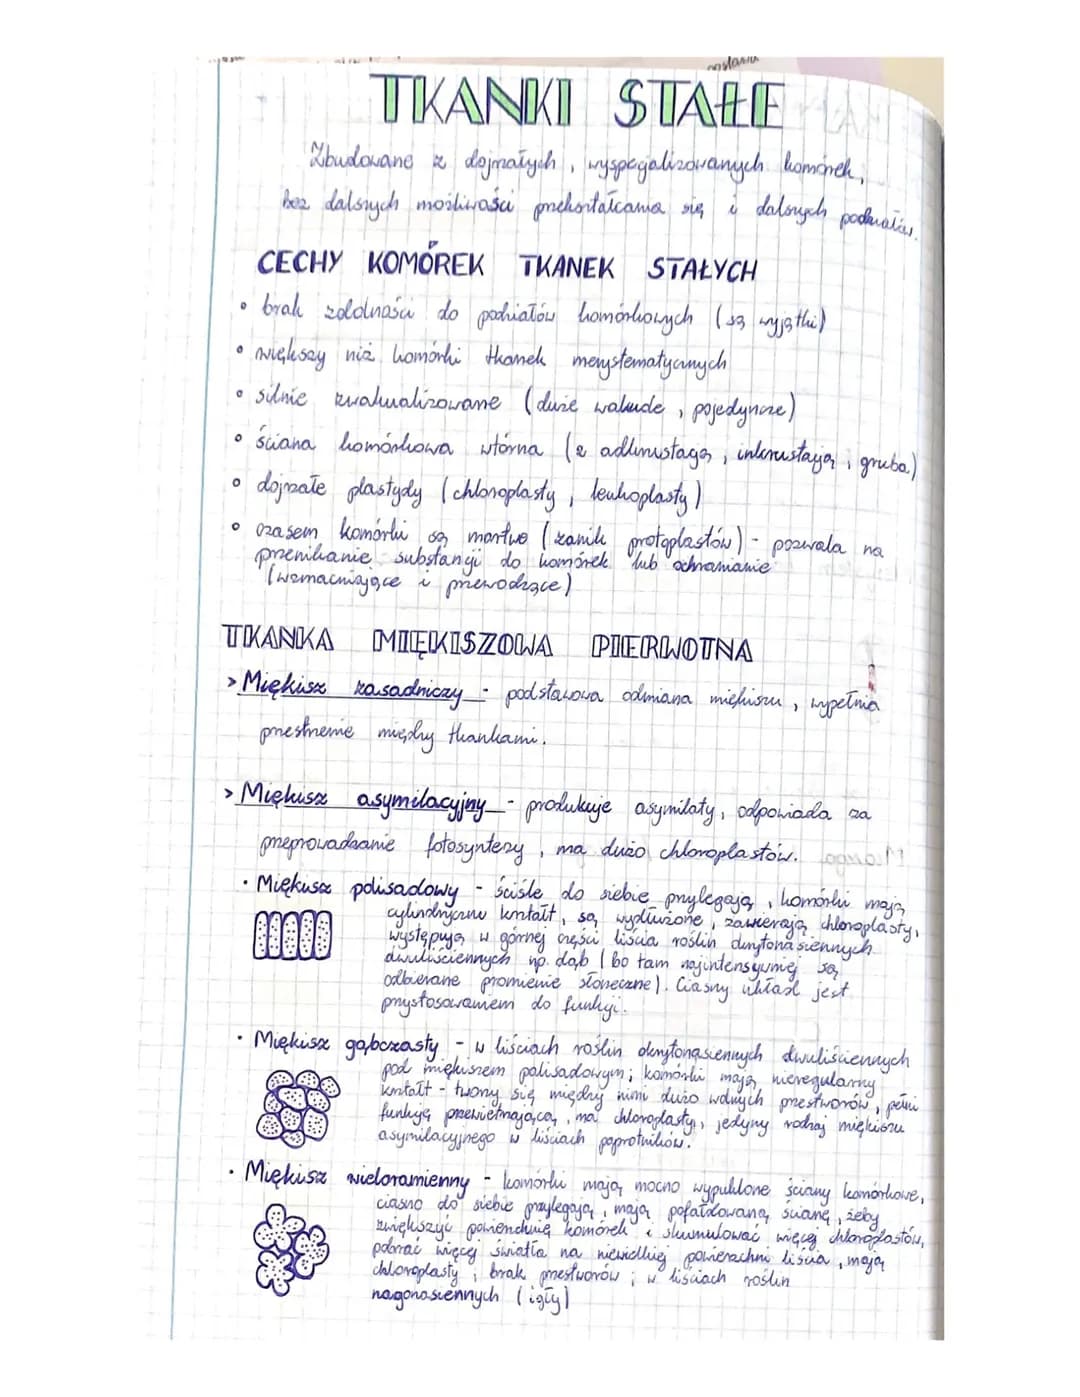 TKANKI STAŁE
Zbudowane z dojrzałych, wyspecjalizowanych komórek,
bez dalszych możliwości przekształcania się i dalszych podziałów.
CECHY KOMÓREK TKANEK STAŁYCH
• brak zdolności do podziałów komórkowych (są wyjątki)
• większy niż komórki tkanek merystematycznych
• silnie zwakualizowane (duże wakuole, pojedyncze)
• ściana komórkowa wtórna (z adkrustacją, inkrustacją, gruba)
• dojrzałe plastydy (chloroplasty, leukoplasty)
• czasem komórki są martwe (zanik protoplastów) - pozwala na
przenikanie substancji do komórek lub ochranianie
(wzmacniające i przewodzące)
TKANKA MIĘKISZOWA PIERWOTNA
> Miękisz zasadniczy - podstawowa odmiana miękiszu, wypełnia
przestrzenie między tkankami.
> Miękisz asymilacyjny - produkuje asymilaty, odpowiada za
przeprowadzanie fotosyntezy, ma dużo chloroplastów.
• Miękisz palisadowy - ściśle do siebie przylegają, komórki mają
cylindryczny kształt, są wydłużone, zawierają chloroplasty,
występują w górnej części liścia roślin okrytonasiennych
dwuliściennych np. dąb (bo tam najintensywniej są
odbierane promienie słoneczne). Ciasny układ jest
przystosowaniem do funkcji.
• Miękisz gąbczasty - w liściach roślin okrytonasiennych dwuliściennych
pod miękiszem palisadowym; komórki mają nieregularny
kształt - tworzy się między nimi dużo wolnych przestworów, pełni
funkcję przewietrzającą, ma chloroplasty, jedyny rodzaj miękiszu
asymilacyjnego w liściach paprotników.
• Miękisz wieloramienny - komórki mają mocno wypuklone ściany komórkowe,
ciasno do siebie przylegają, mają pofałdowaną ścianę, żeby
zwiększyć powierzchnię komórek i skumulować więcej chloroplastów,
pobrać więcej światła na niewielkiej powierzchni liścia, mają
chloroplasty; brak przestworów; w liściach roślin
nagonasiennych (igły)